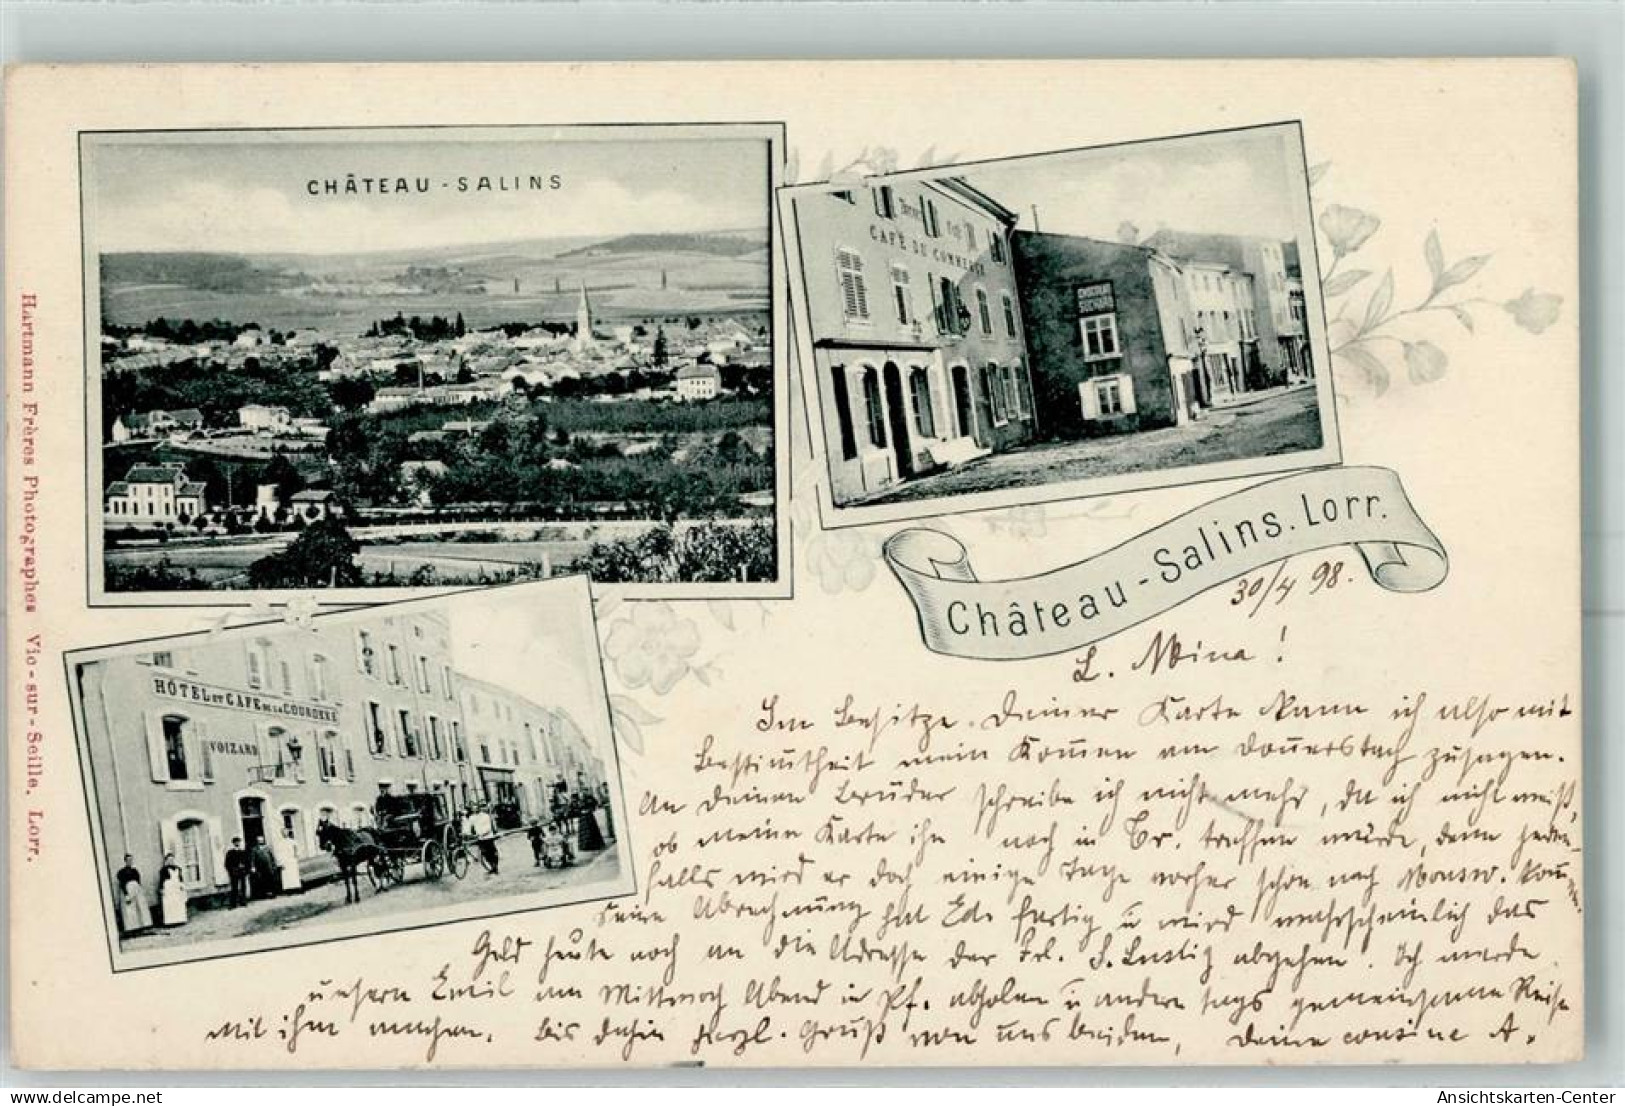 CHÂTEAU - SALINS
CAFÉ DU COMMERCE
HÔTEL ET CAFÉ DE LA COURONNE
VOIZARD
Hartmann Frères Photographes Vic - sur - Seille. Lorr.
Château - Salins. Lorr.
30/4 98.
L. Mina!
Im Besitze Deiner Karte kann ich also mit
Bestimtheit mein Komen am Donnerstach zusagen.
An Deinen Bruder schreibe ich nicht mehr, da ich nicht weiß,
ob meine Karte ihn noch in Br. treffen würde, denn jeden-
falls wird er doch einige Tage vorher schon nach komen.
Seine Abrechnung hat Ede fertig u wird wahrscheinlich das
Geld heute noch an die Adresse der Frl. S. Lustig abgehen. Ich werde
unsern Emil am Mittwoch Abend in Pf. abholen u andern tags gemeinsame Reise
mit ihm machen. Bis dahin herzl. Gruß von uns beiden, Deine cousine A.
Ansichtskarten-Center